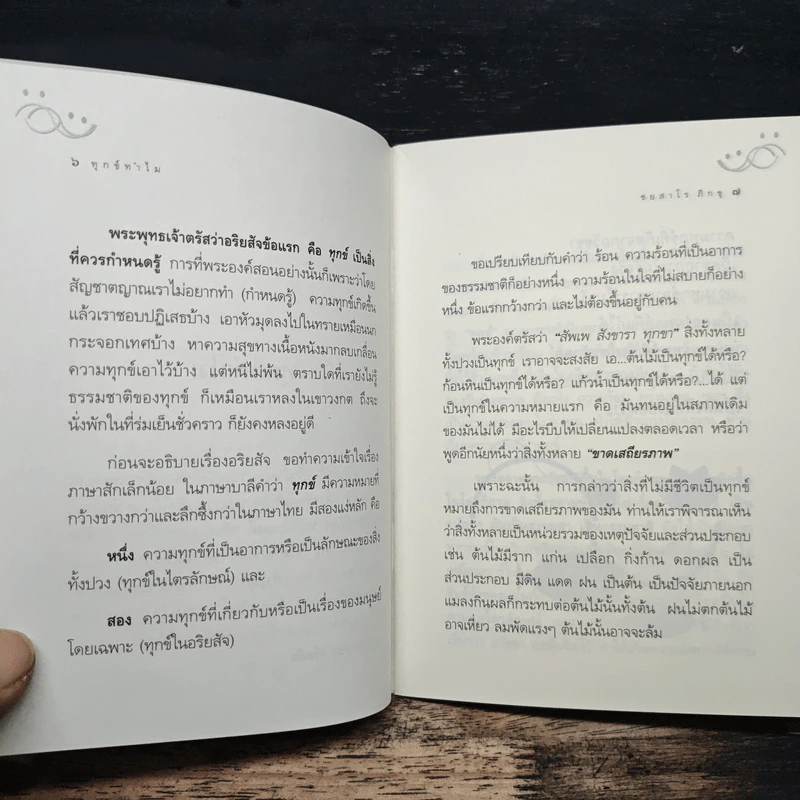 ๖ ทุกข์ทำไม
พระพุทธเจ้าตรัสว่าอริยสัจข้อแรก คือ ทุกข์ เป็นสิ่ง
ที่ควรกำหนดรู้ การที่พระองค์สอนอย่างนั้นก็เพราะว่าโดย
สัญชาตญาณเราไม่อยากทำ (กำหนดรู้) ความทุกข์เกิดขึ้น
แล้วเราชอบปฏิเสธบ้าง เอาหัวมุดลงไปในทรายเหมือนนก
กระจอกเทศบ้าง หาความสุขทางเนื้อหนังมากลบเกลื่อน
ความทุกข์เอาไว้บ้าง แต่หนีไม่พ้น ตราบใดที่เรายังไม่รู้
ธรรมชาติของทุกข์ ก็เหมือนเราหลงในเขาวงกต ถึงจะ
นั่งพักในที่ร่มเย็นชั่วคราว ก็ยังคงหลงอยู่ดี
ก่อนจะอธิบายเรื่องอริยสัจ ขอทำความเข้าใจเรื่อง
ภาษาสักเล็กน้อย ในภาษาบาลีคำว่า ทุกข์ มีความหมายที่
กว้างขวางกว่าและลึกซึ้งกว่าในภาษาไทย มีสองแง่หลัก คือ
หนึ่ง ความทุกข์ที่เป็นอาการหรือเป็นลักษณะของสิ่ง
ทั้งปวง (ทุกข์ในไตรลักษณ์) และ
สอง ความทุกข์ที่เกี่ยวกับหรือเป็นเรื่องของมนุษย์
โดยเฉพาะ (ทุกข์ในอริยสัจ)
ชยสาโร ภิกขุ ๗
ขอเปรียบเทียบกับคำว่า ร้อน ความร้อนที่เป็นอาการ
ของธรรมชาติก็อย่างหนึ่ง ความร้อนในใจที่ไม่สบายก็อย่าง
หนึ่ง ข้อแรกกว้างกว่า และไม่ต้องขึ้นอยู่กับคน
พระองค์ตรัสว่า “สัพเพ สังขารา ทุกขา” สิ่งทั้งหลาย
ทั้งปวงเป็นทุกข์ เราอาจจะสงสัย เอ...ต้นไม้เป็นทุกข์ได้หรือ?
ก้อนหินเป็นทุกข์ได้หรือ? แก้วน้ำเป็นทุกข์ได้หรือ?...ได้ แต่
เป็นทุกข์ในความหมายแรก คือ มันทนอยู่ในสภาพเดิม
ของมันไม่ได้ มีอะไรบีบให้เปลี่ยนแปลงตลอดเวลา หรือว่า
พูดอีกนัยหนึ่งว่าสิ่งทั้งหลาย “ขาดเสถียรภาพ”
เพราะฉะนั้น การกล่าวว่าสิ่งที่ไม่มีชีวิตเป็นทุกข์
หมายถึงการขาดเสถียรภาพของมัน ท่านให้เราพิจารณาเห็น
ว่าสิ่งทั้งหลายเป็นหน่วยรวมของเหตุปัจจัยและส่วนประกอบ
เช่น ต้นไม้มีราก แก่น เปลือก กิ่งก้าน ดอกผล เป็น
ส่วนประกอบ มีดิน แดด ฝน เป็นต้น เป็นปัจจัยภายนอก
แมลงกินผลก็กระทบต่อต้นไม้นั้นทั้งต้น ฝนไม่ตกต้นไม้
อาจเหี่ยว ลมพัดแรงๆ ต้นไม้นั้นอาจจะล้ม